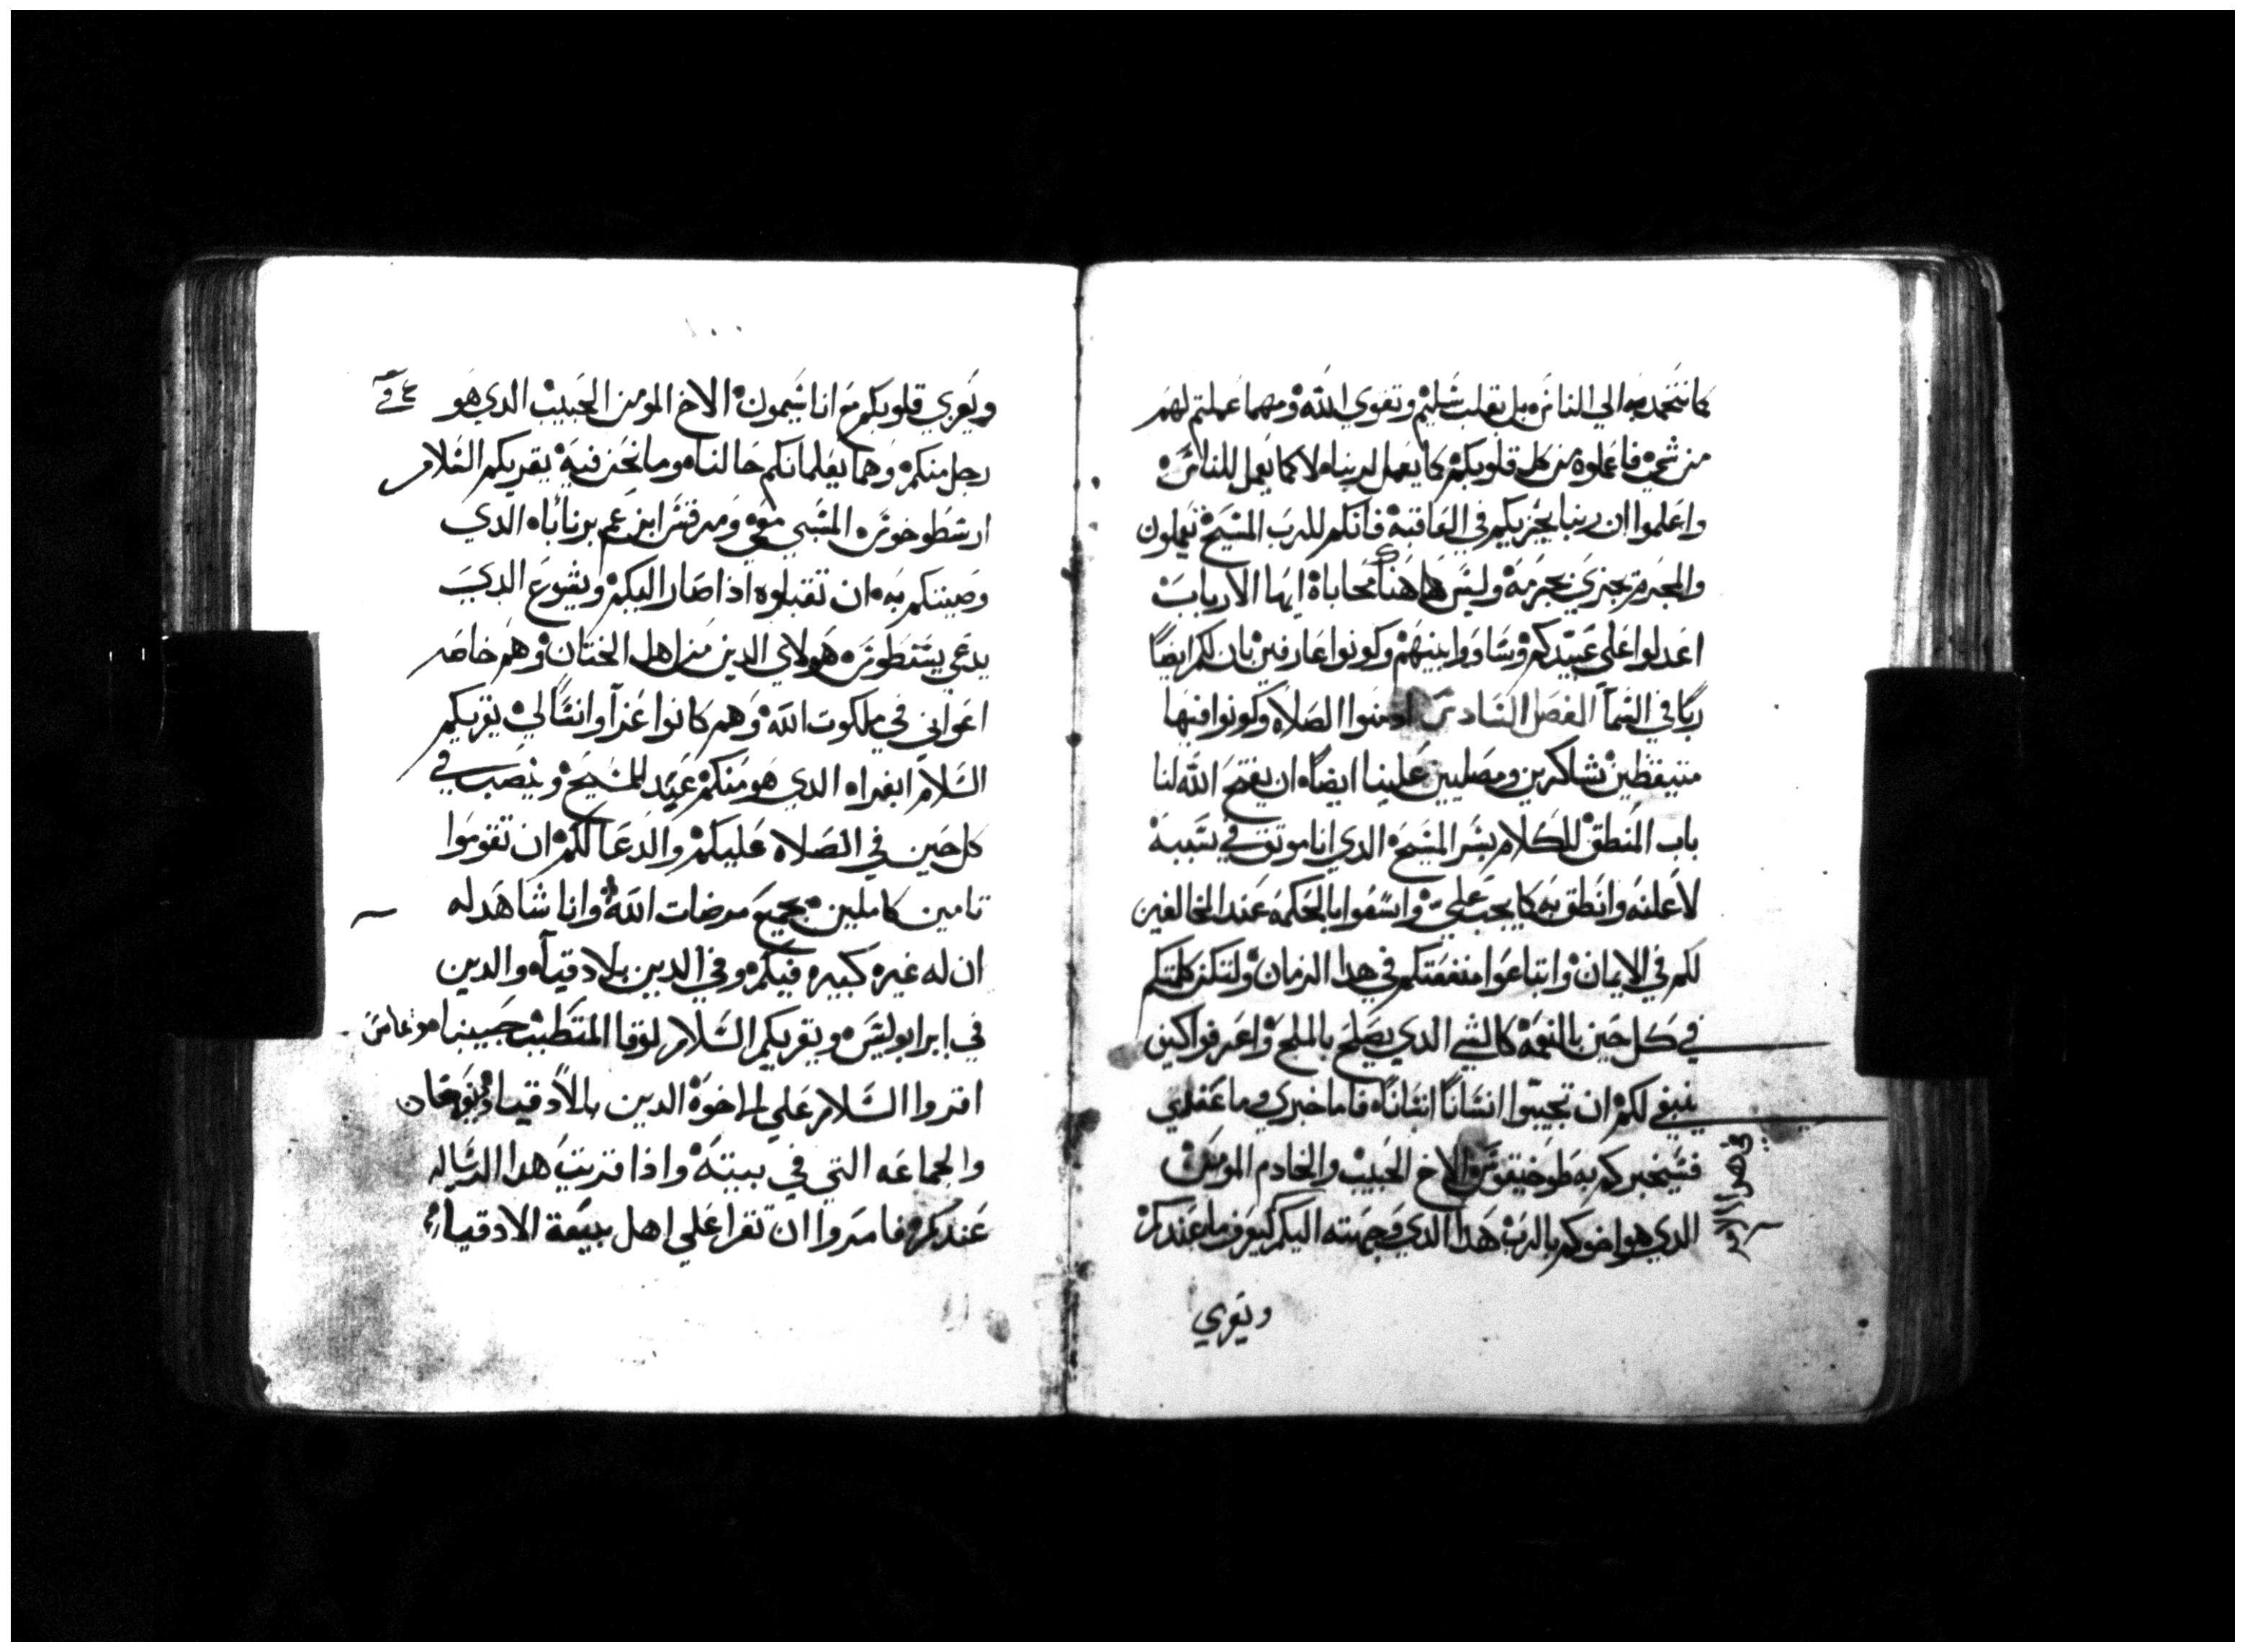 كما نتحمد به الي الناس بل بقلب سليم وتقوي الله ومهما عملتم لهم
من شي فاعملوه من كل قلوبكم كما يعمل لربناه لا كما يعمل للناس
واعلموا ان ربنا يجزيكم في العاقبة فانكم للرب المسيح تعملون
والمجرم يجزي بجرمه وليس هاهنا محاباة ايها الارباب
اعدلوا علي عبيدكم وساووا بينهم وكونوا عارفين بان لكم ايضاً
رباً في السما الفصل السادس ادمنوا الصلاه وكونوا فيها
متيقظين شاكرين ومصليين علينا ايضاً ان يفتح الله لنا
باب المنطق للكلام بسر المسيح الدي انا موتق في سببه
لاعلنه وانطق به كما يجب علي واسعوا بالحكمه عند المخالفين
لكم في الايمان وابتاعوا منفعتكم في هدا الزمان ولتكن كلمتكم
في كل حين بالنعمه كالشي الدي يصلح بالملح واعرفوا كيف
ينبغي لكم ان تجيبوا انساناً انساناً فاما خبري وما عندي
فسيخبركم به طوخيقوس الاخ الحبيب والخادم المومن
الدي هو اخوكم بالرب هدا الدي وجهته اليكم ليعرف ما عندكم
ويعزي
ويعزي قلوبكم مع اناسيمون الاخ المومن الحبيب الدي هو
رجل منكم وهما يعلمانكم حالناه وما نحن فيه يقريكم السلام
ارسطرخوس المسبي معي ومرقس ابن عم برناباه الدي
وصيتكم به ان تقبلوه ادا صار اليكم ويشوع الدي
يدعي يسطوس هولاي الدين من اهل الختان وهم خاصه
اعواني في ملكوت الله وهم كانوا عزاً وانسا لي يقريكم
السلام ابفراه الدي هو منكم عبد للمسيح وينصب في
كل حين في الصلاه عليكم والدعا لكم ان تقوموا
تامين كاملين بجميع مرضات الله وانا شاهد له
ان له غيره كبيره فيكم وفي الدين بلادقياه والدين
في ايرابوليس ويقريكم السلام لوقا المتطبب حبيبنا
اقروا السلام علي الاخوة الدين بالادقيا
والجماعه التي في بيته واذا قريت هدا الرساله
عندكم فامروا ان تقرا علي اهل بيعة الادقيا